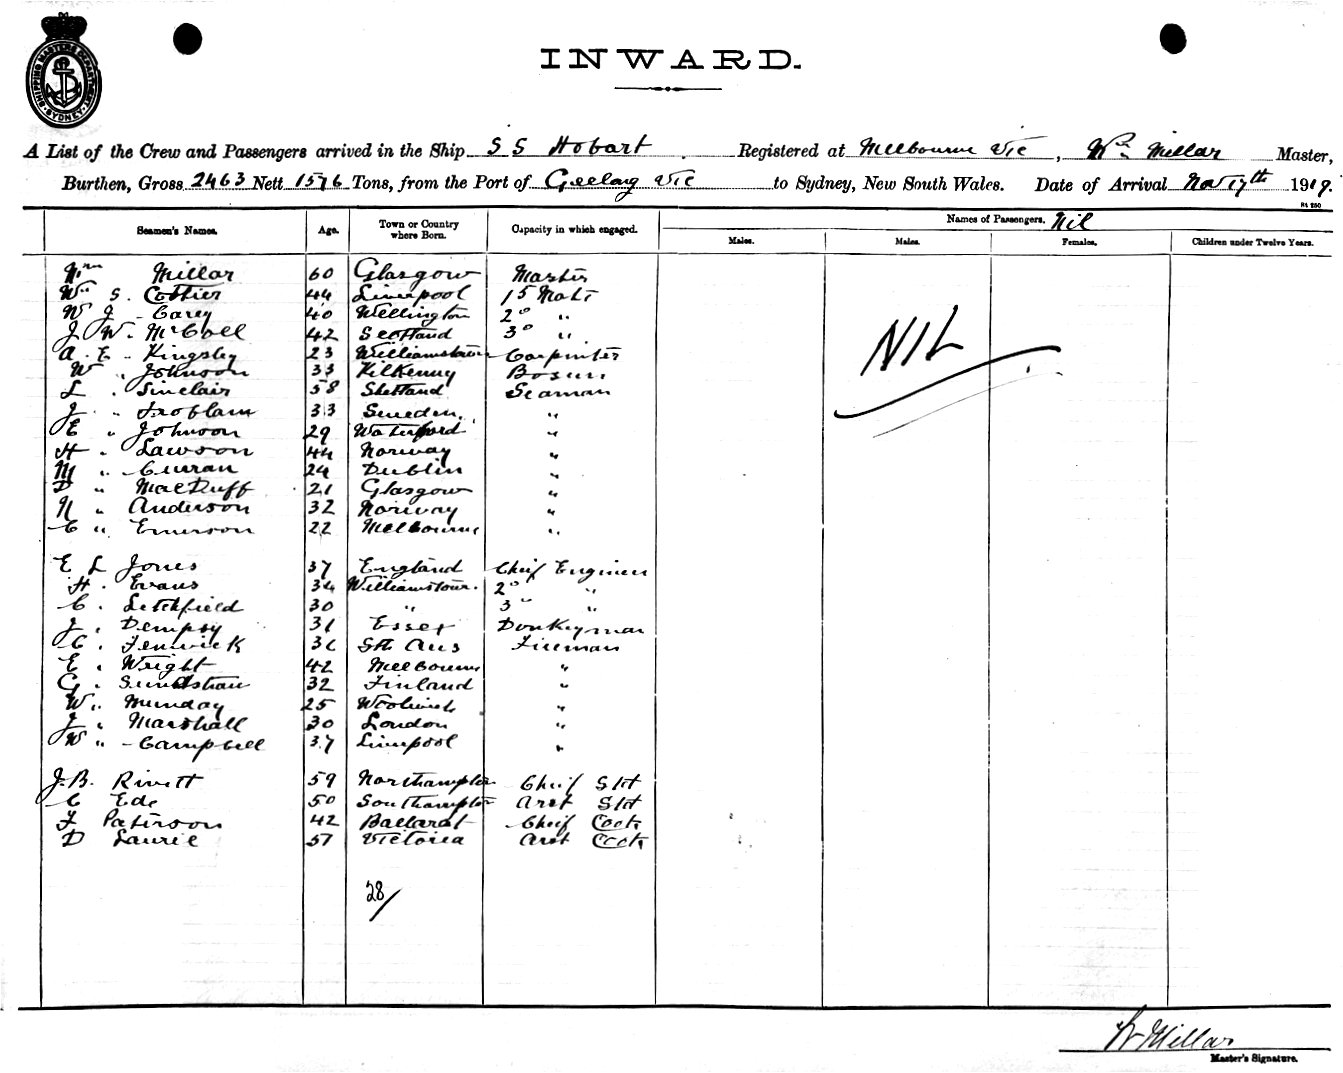 SHIPPING MASTERS DEPARTMENT SYDNEY
INWARD.
A List of the Crew and Passengers arrived in the Ship S S Hobart Registered at Melbourne Vic, Wm Millar Master,
Burthen, Gross 2463 Nett 1576 Tons, from the Port of Geelong Vic to Sydney, New South Wales. Date of Arrival Nov 17th 1919.
Seamen's Names. Age. Town or Country where Born. Capacity in which engaged. Names of Passengers. Nil
Males. Males. Females. Children under Twelve Years.
Wm Millar 60 Glasgow Master
Wm S. Cottier 44 Liverpool 1st Mate
W J - Carey 40 Wellington 2° "
J W. McColl 42 Scotland 3° "
A. E. - Kingsley 23 Williamstown Carpenter
W. Johnson 33 Kilkenny Bosun
L. Sinclair 58 Shetland Seaman
J " 33 Sweden. "
E " Johnson 29 Waterford "
H. Lawson 44 Norway "
M " Curran 24 Dublin "
D " MacDuff 21 Glasgow "
N " Anderson 32 Norway "
C " Emerson 22 Melbourne "
E L Jones 37 England Chief Engineer
H. Evans 34 Williamstown. 2° "
C. Letchfield 30 " 3° "
J. Dempsy 31 Essex Donkeyman
C. Fenwick 31 Sth Aus Fireman
E. Wright 42 Melbourne "
G. 32 Finland "
W. Munday 25 Woolwich "
J. Marshall 30 London "
W " - Campbell 37 Liverpool "
J. B. Rivett 59 Northampton Chief Std
C Ede 50 Southampton Asst Std
F Paterson 42 Ballarat Chief Cook
D Laurie 57 Victoria Asst Cook
NIL
28/
W Millar
Master's Signature.